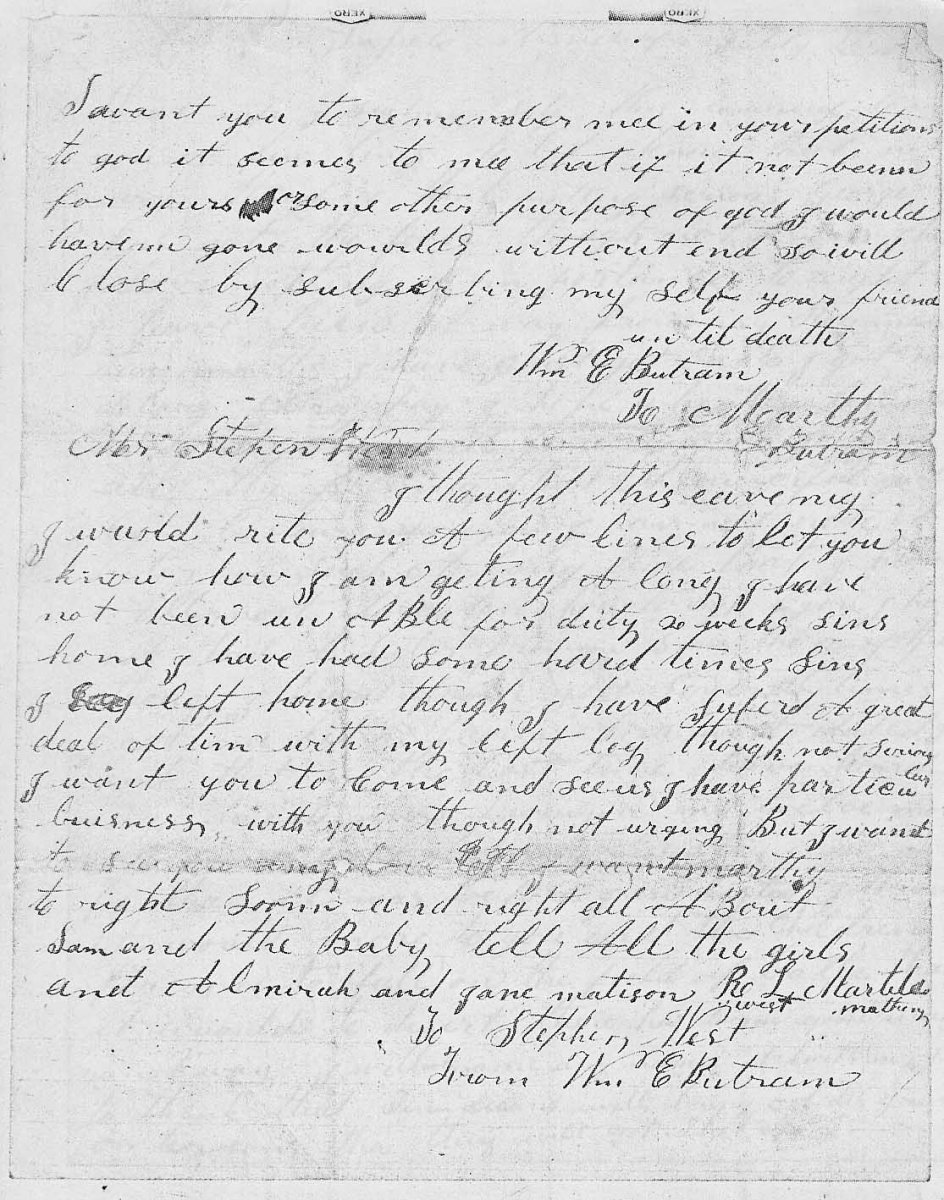 XERO XERO
I want you to remember mee in yours petitions
to god it seemes to mee that if it not beenn
for yours or some other purpose of god I would
havenn gone wowrlds without end so will
Close by subscrbing my self your friend
un til death
Wm E Butram
To Mearthy
Butram
Mr Stephen West
I thought this eaveng
I wuold rite you A few lines to let you
know how I am geting A long I have
not been un ABle for duty 20 weeks sins
home I have had some hard times sins
I left home though I have suferd A great
deal of tim with my left leg though not serious
I want you to Come and see us I have particular
buisness with you though not urging But I want
to see you I want marthy
to right soonn and right all A Bout
Sam and the Baby tell All the girls
and Almirah and jane matison R L West
To Stephen West
From Wm E Butram